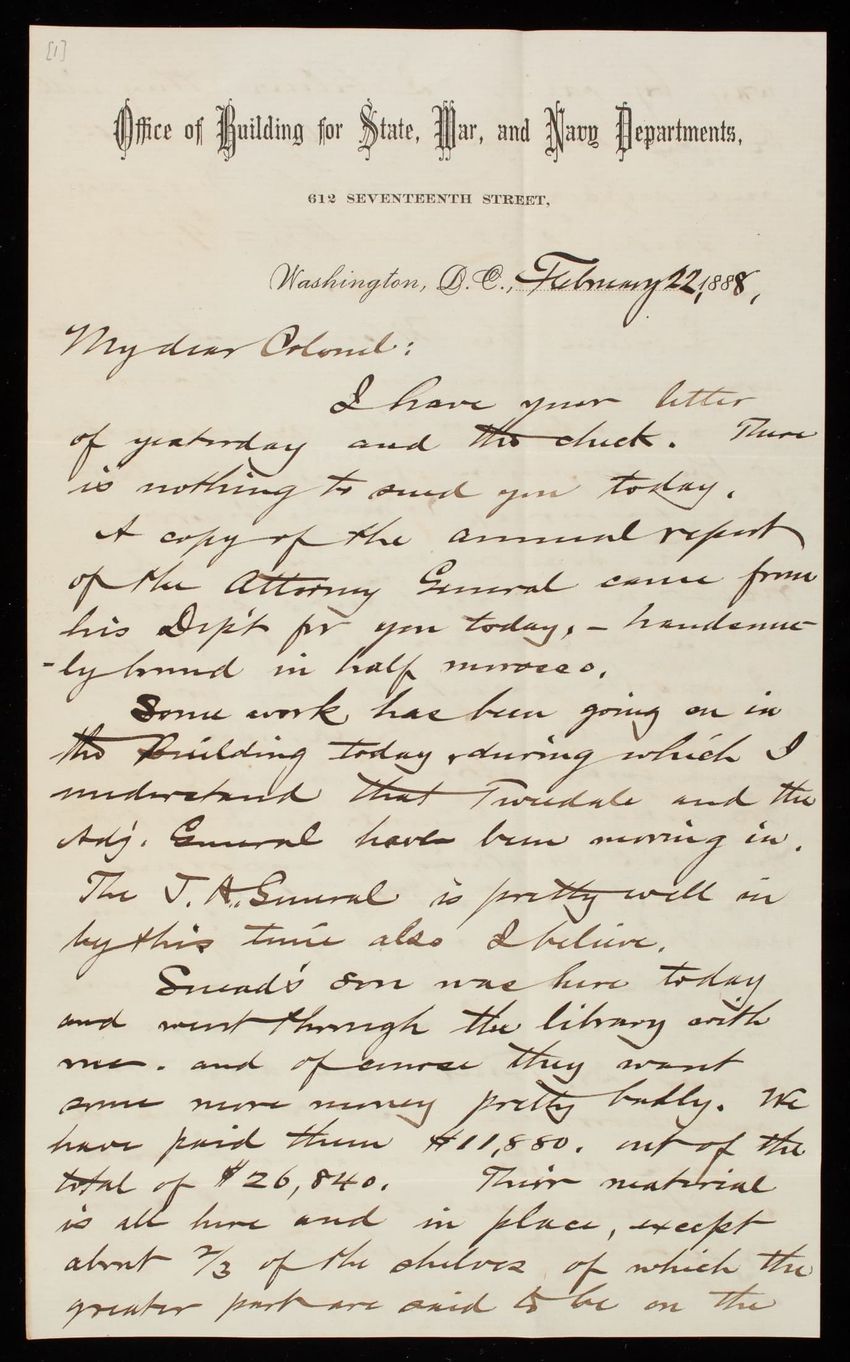 [1]
Office of Building for State, War, and Navy Departments,
612 SEVENTEENTH STREET,
Washington, D.C., February 22, 1888,
My dear Colonel:
I have your letter
of yesterday and the check. There
is nothing to send you today.
A copy of the annual report
of the Attorney General came from
his Dep't for you today, - handsome-
-ly bound in half morocco.
Some work has been going on in
the Building today, during which I
understand that Tweedale and the
Adj. General have been moving in.
The J. A. General is pretty well in
by this time also I believe.
Snead's son was here today
and went through the library with
me. and of course they want
some more money pretty badly. We
have paid them $11,880. out of the
total of $26,840. Their material
is all here and in place, except
about 2/3 of the shelves of which the
greater part are said to be on the